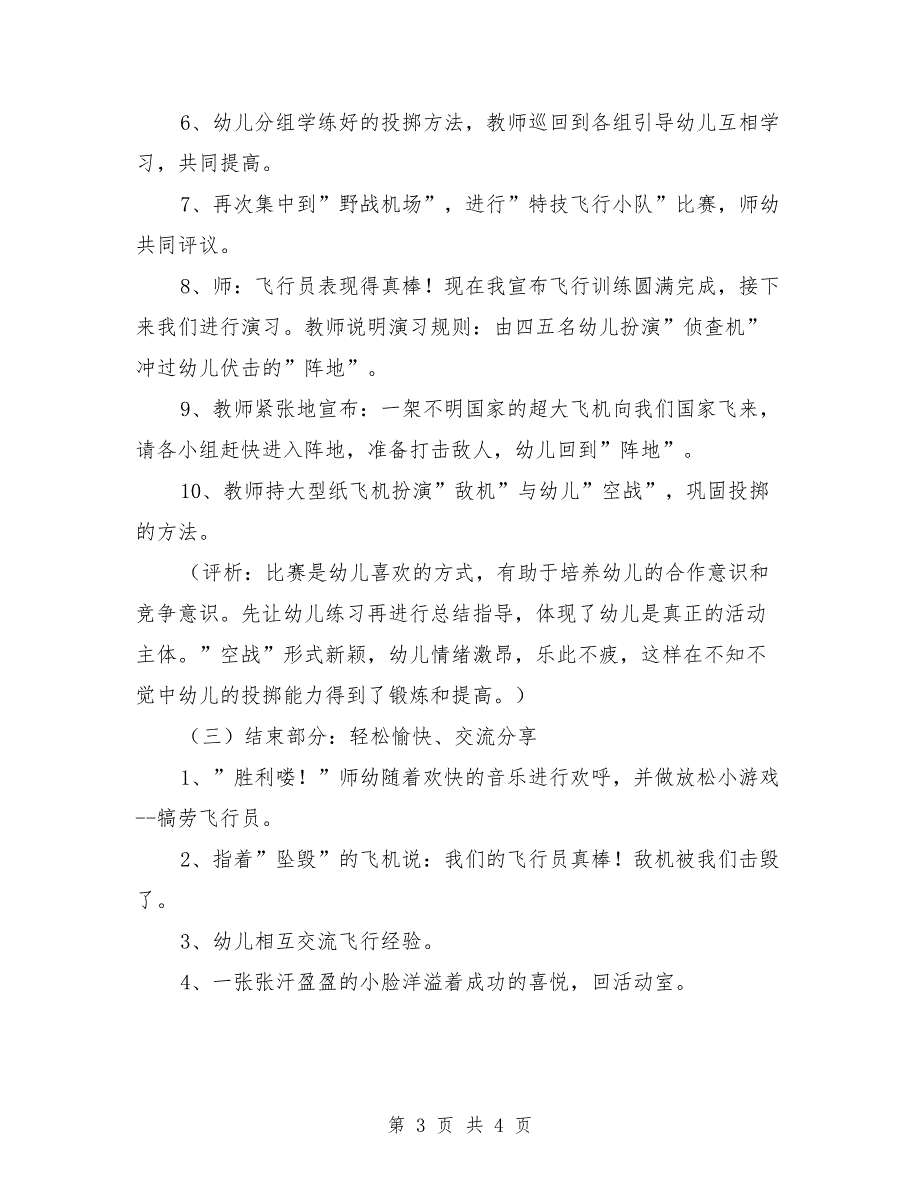 6、幼儿分组学练好的投掷方法，教师巡回到各组引导幼儿互相学
习，共同提高。
7、再次集中到”野战机场”，进行”特技飞行小队”比赛，师幼
共同评议。
8、师：飞行员表现得真棒！现在我宣布飞行训练圆满完成，接下
来我们进行演习。教师说明演习规则：由四五名幼儿扮演”侦查机”
冲过幼儿伏击的”阵地”。
9、教师紧张地宣布：一架不明国家的超大飞机向我们国家飞来，
请各小组赶快进入阵地，准备打击敌人，幼儿回到”阵地”。
10、教师持大型纸飞机扮演”敌机”与幼儿”空战”，巩固投掷
的方法。
（评析：比赛是幼儿喜欢的方式，有助于培养幼儿的合作意识和
竞争意识。先让幼儿练习再进行总结指导，体现了幼儿是真正的活动
主体。”空战”形式新颖，幼儿情绪激昂，乐此不疲，这样在不知不
觉中幼儿的投掷能力得到了锻炼和提高。）
（三）结束部分：轻松愉快、交流分享
1、”胜利喽！”师幼随着欢快的音乐进行欢呼，并做放松小游戏
--犒劳飞行员。
2、指着”坠毁”的飞机说：我们的飞行员真棒！敌机被我们击毁
了。
3、幼儿相互交流飞行经验。
4、一张张汗盈盈的小脸洋溢着成功的喜悦，回活动室。
第 3 页 共 4 页